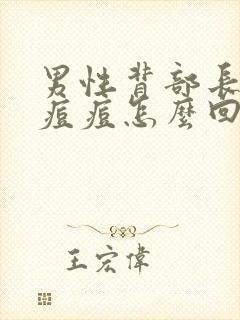 男性背部長
痘痘怎麼回
王宏偉